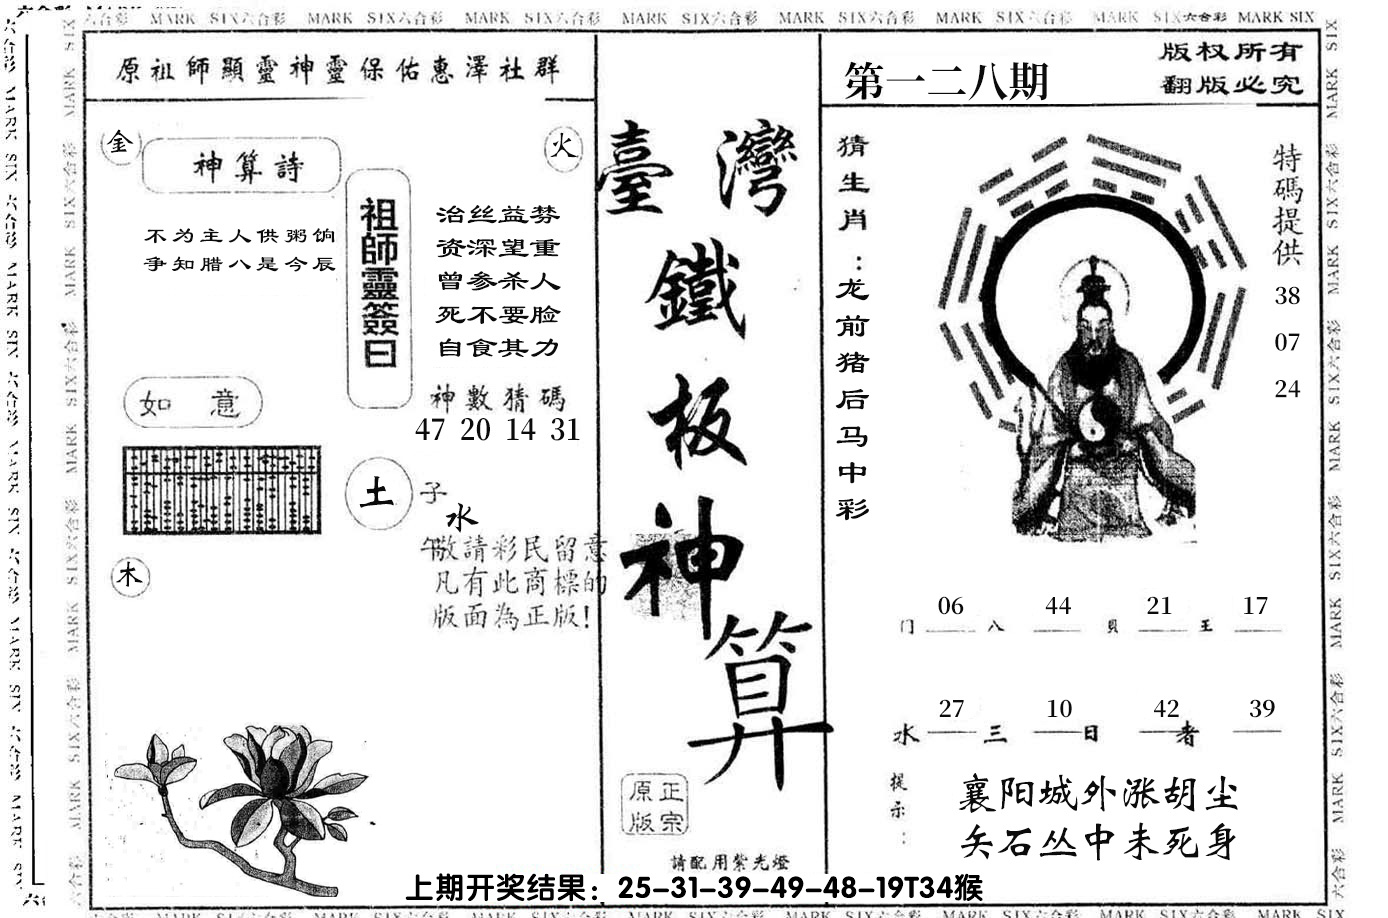 原祖師顯靈神靈保佑惠澤社群
金
火
神算詩
不为主人供粥饷
争知腊八是今辰
祖師靈簽曰
治丝益棼
资深望重
曾参杀人
死不要脸
自食其力
如意
神數猜碼
47 20 14 31
土
子
水
午
敬請彩民留意
凡有此商標的
版面為正版!
木
臺灣
鐵
板
神
算
正宗
原版
請配用紫光燈
第一二八期
版权所有
翻版必究
猜生肖:龙前猪后马中彩
特碼提供
38
07
24
06 44 21 17
门 八 貝 王
27 10 42 39
水 三 日 者
提示:
襄阳城外涨胡尘
矢石丛中未死身
上期开奖结果：25-31-39-49-48-19T34猴
MARK SIX六合彩 MARK SIX六合彩 MARK SIX六合彩 MARK SIX六合彩 MARK SIX六合彩 MARK SIX六合彩 MARK SIX六合彩 MARK SIX